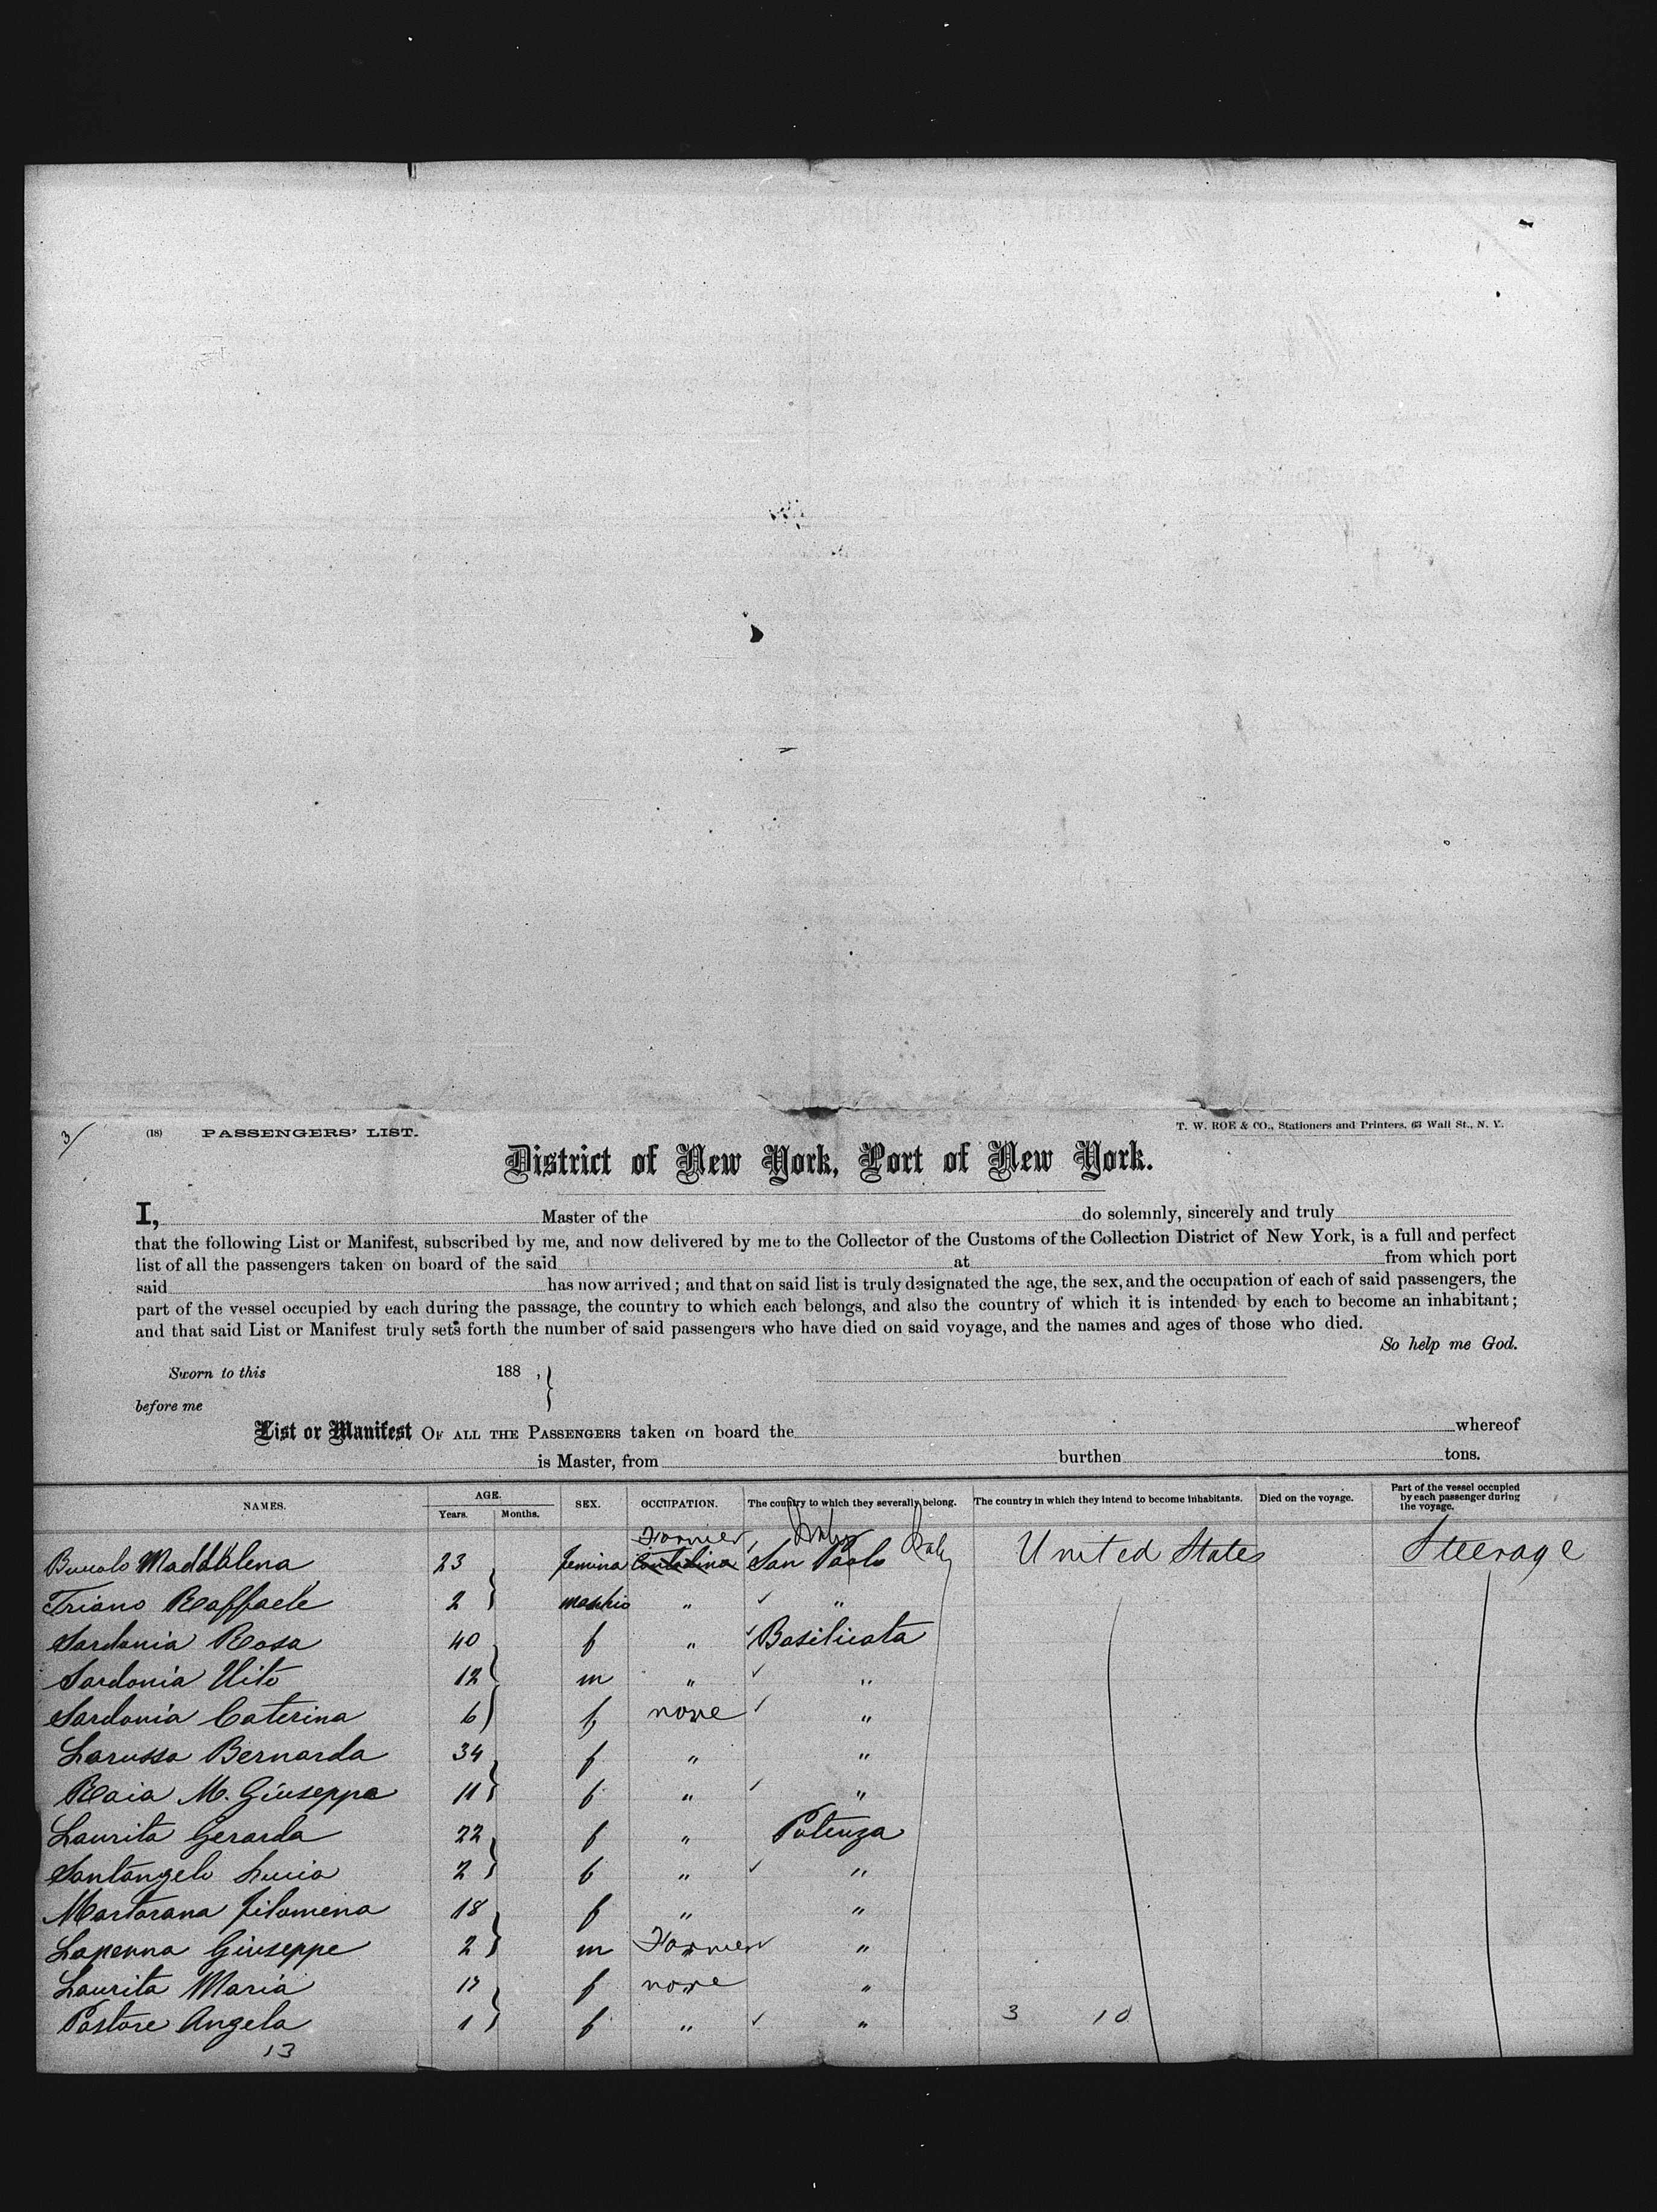 3/
(18) PASSENGERS' LIST.
T. W. ROE & CO., Stationers and Printers, 63 Wall St., N. Y.
District of New York, Port of New York.
I, Master of the do solemnly, sincerely and truly
that the following List or Manifest, subscribed by me, and now delivered by me to the Collector of the Customs of the Collection District of New York, is a full and perfect
list of all the passengers taken on board of the said at from which port
said has now arrived; and that on said list is truly designated the age, the sex, and the occupation of each of said passengers, the
part of the vessel occupied by each during the passage, the country to which each belongs, and also the country of which it is intended by each to become an inhabitant;
and that said List or Manifest truly sets forth the number of said passengers who have died on said voyage, and the names and ages of those who died.
So help me God.
Sworn to this 188 ,
before me
List or Manifest OF ALL THE PASSENGERS taken on board the whereof
is Master, from burthen tons.
NAMES. AGE. Years. Months. SEX. OCCUPATION. The country to which they severally belong. The country in which they intend to become inhabitants. Died on the voyage. Part of the vessel occupied by each passenger during the voyage.
Farmer Italy Italy
Buccolo Maddalena 23 femina Contadina San Paolo United States Steerage
Triano Raffaele 2 maschio " "
Sardonia Rosa 40 f " Basilicata
Sardonia Vito 12 m " "
Sardonia Caterina 6 f none "
Larussa Bernarda 34 f " "
Raia M. Giuseppa 11 f " "
Laurita Gerarda 22 f " Potenza
Santangelo Lucia 2 f " "
Martorana Filomena 18 f " "
Lapenna Giuseppe 2 m Farmer "
Laurita Maria 17 f none "
Pastore Angela 1 f " " 3 10
13